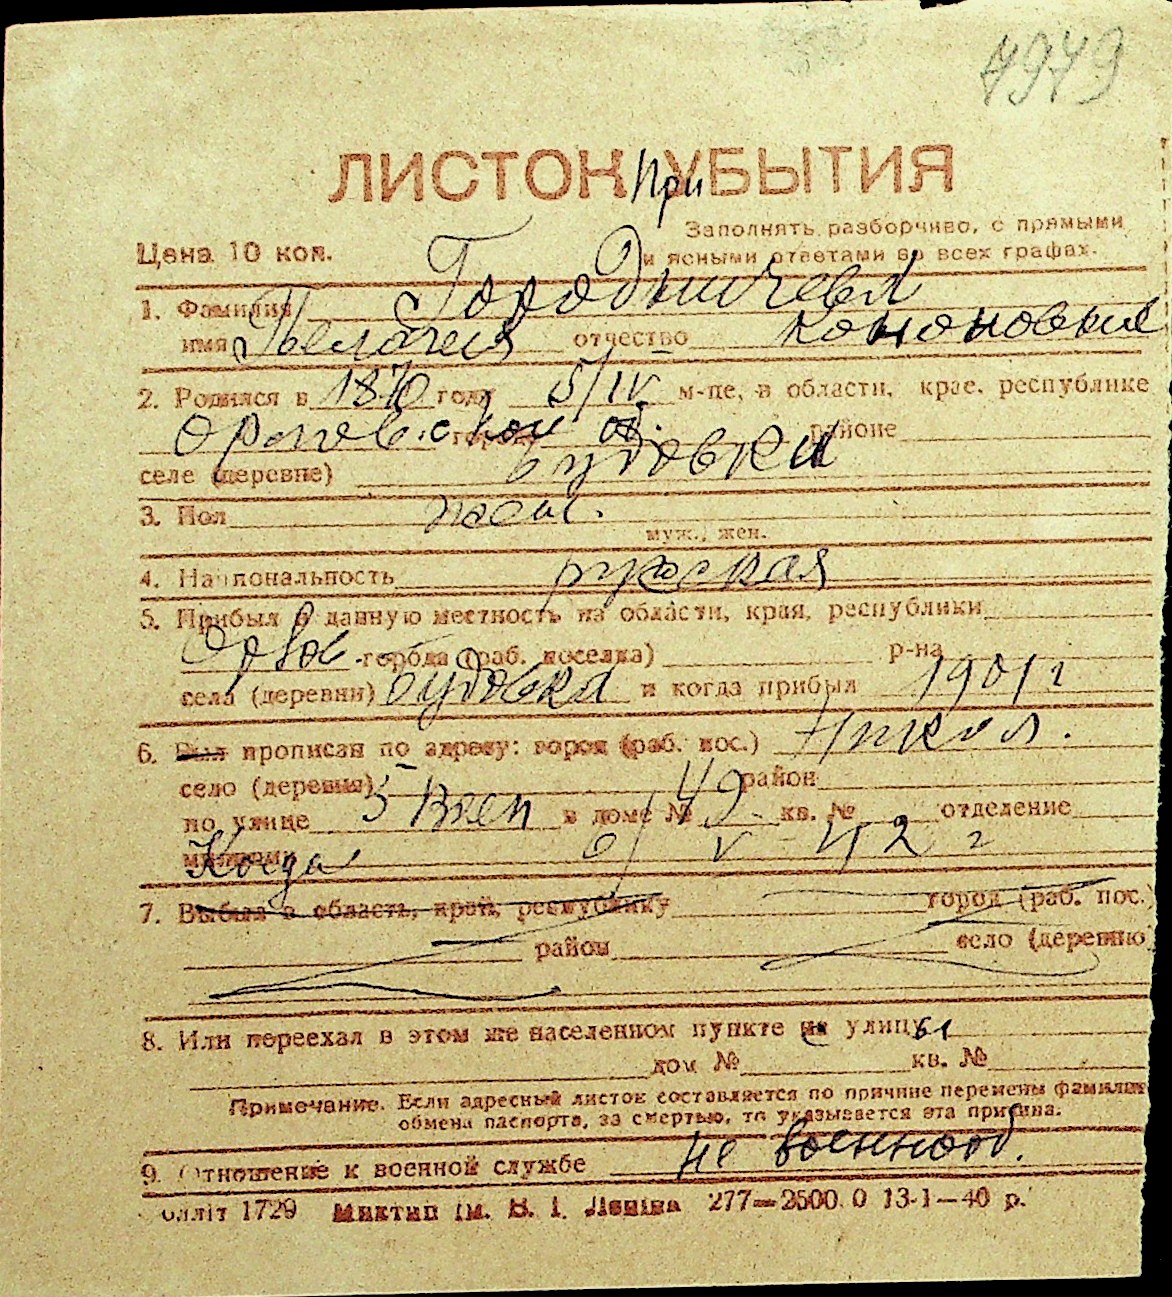 7979
ЛИСТОК При УБЫТИЯ
Заполнять разборчиво, с прямыми
Цена 10 коп.
и ясными ответами во всех графах.
1. Фамилия Городничева
имя Пелагея отчество Кононовна
2. Родился в 1870 году 5/IV м-це, в области, крае, республике
Орловской об. городе районе
селе (деревне) Будовки
3. Пол
муж., жен.
4. Национальность русская
5. Прибыл в данную местность из области, края, республики
Орлов. города (раб. поселка) р-на
села (деревни) Будовка и когда прибыл 1901 г
6. Был прописан по адресу: город (раб. пос.) Никол.
село (деревня) район
по улице 5 Воен в доме № 49 кв. № отделение
милиции Когда 6/V-42 г
7. Выбыл в область, край, республику город (раб. пос.)
район село (деревню)
8. Или переехал в этом же населенном пункте на улицу 61
дом № кв. №
Примечание. Если адресный листок составляется по причине перемены фамилии
обмена паспорта, за смертью, то указывается эта причина.
9. Отношение к военной службе не военнооб.
олліт 1729 Миктип ім. В. І. Леніна 277—2500.0 13-1—40 р.